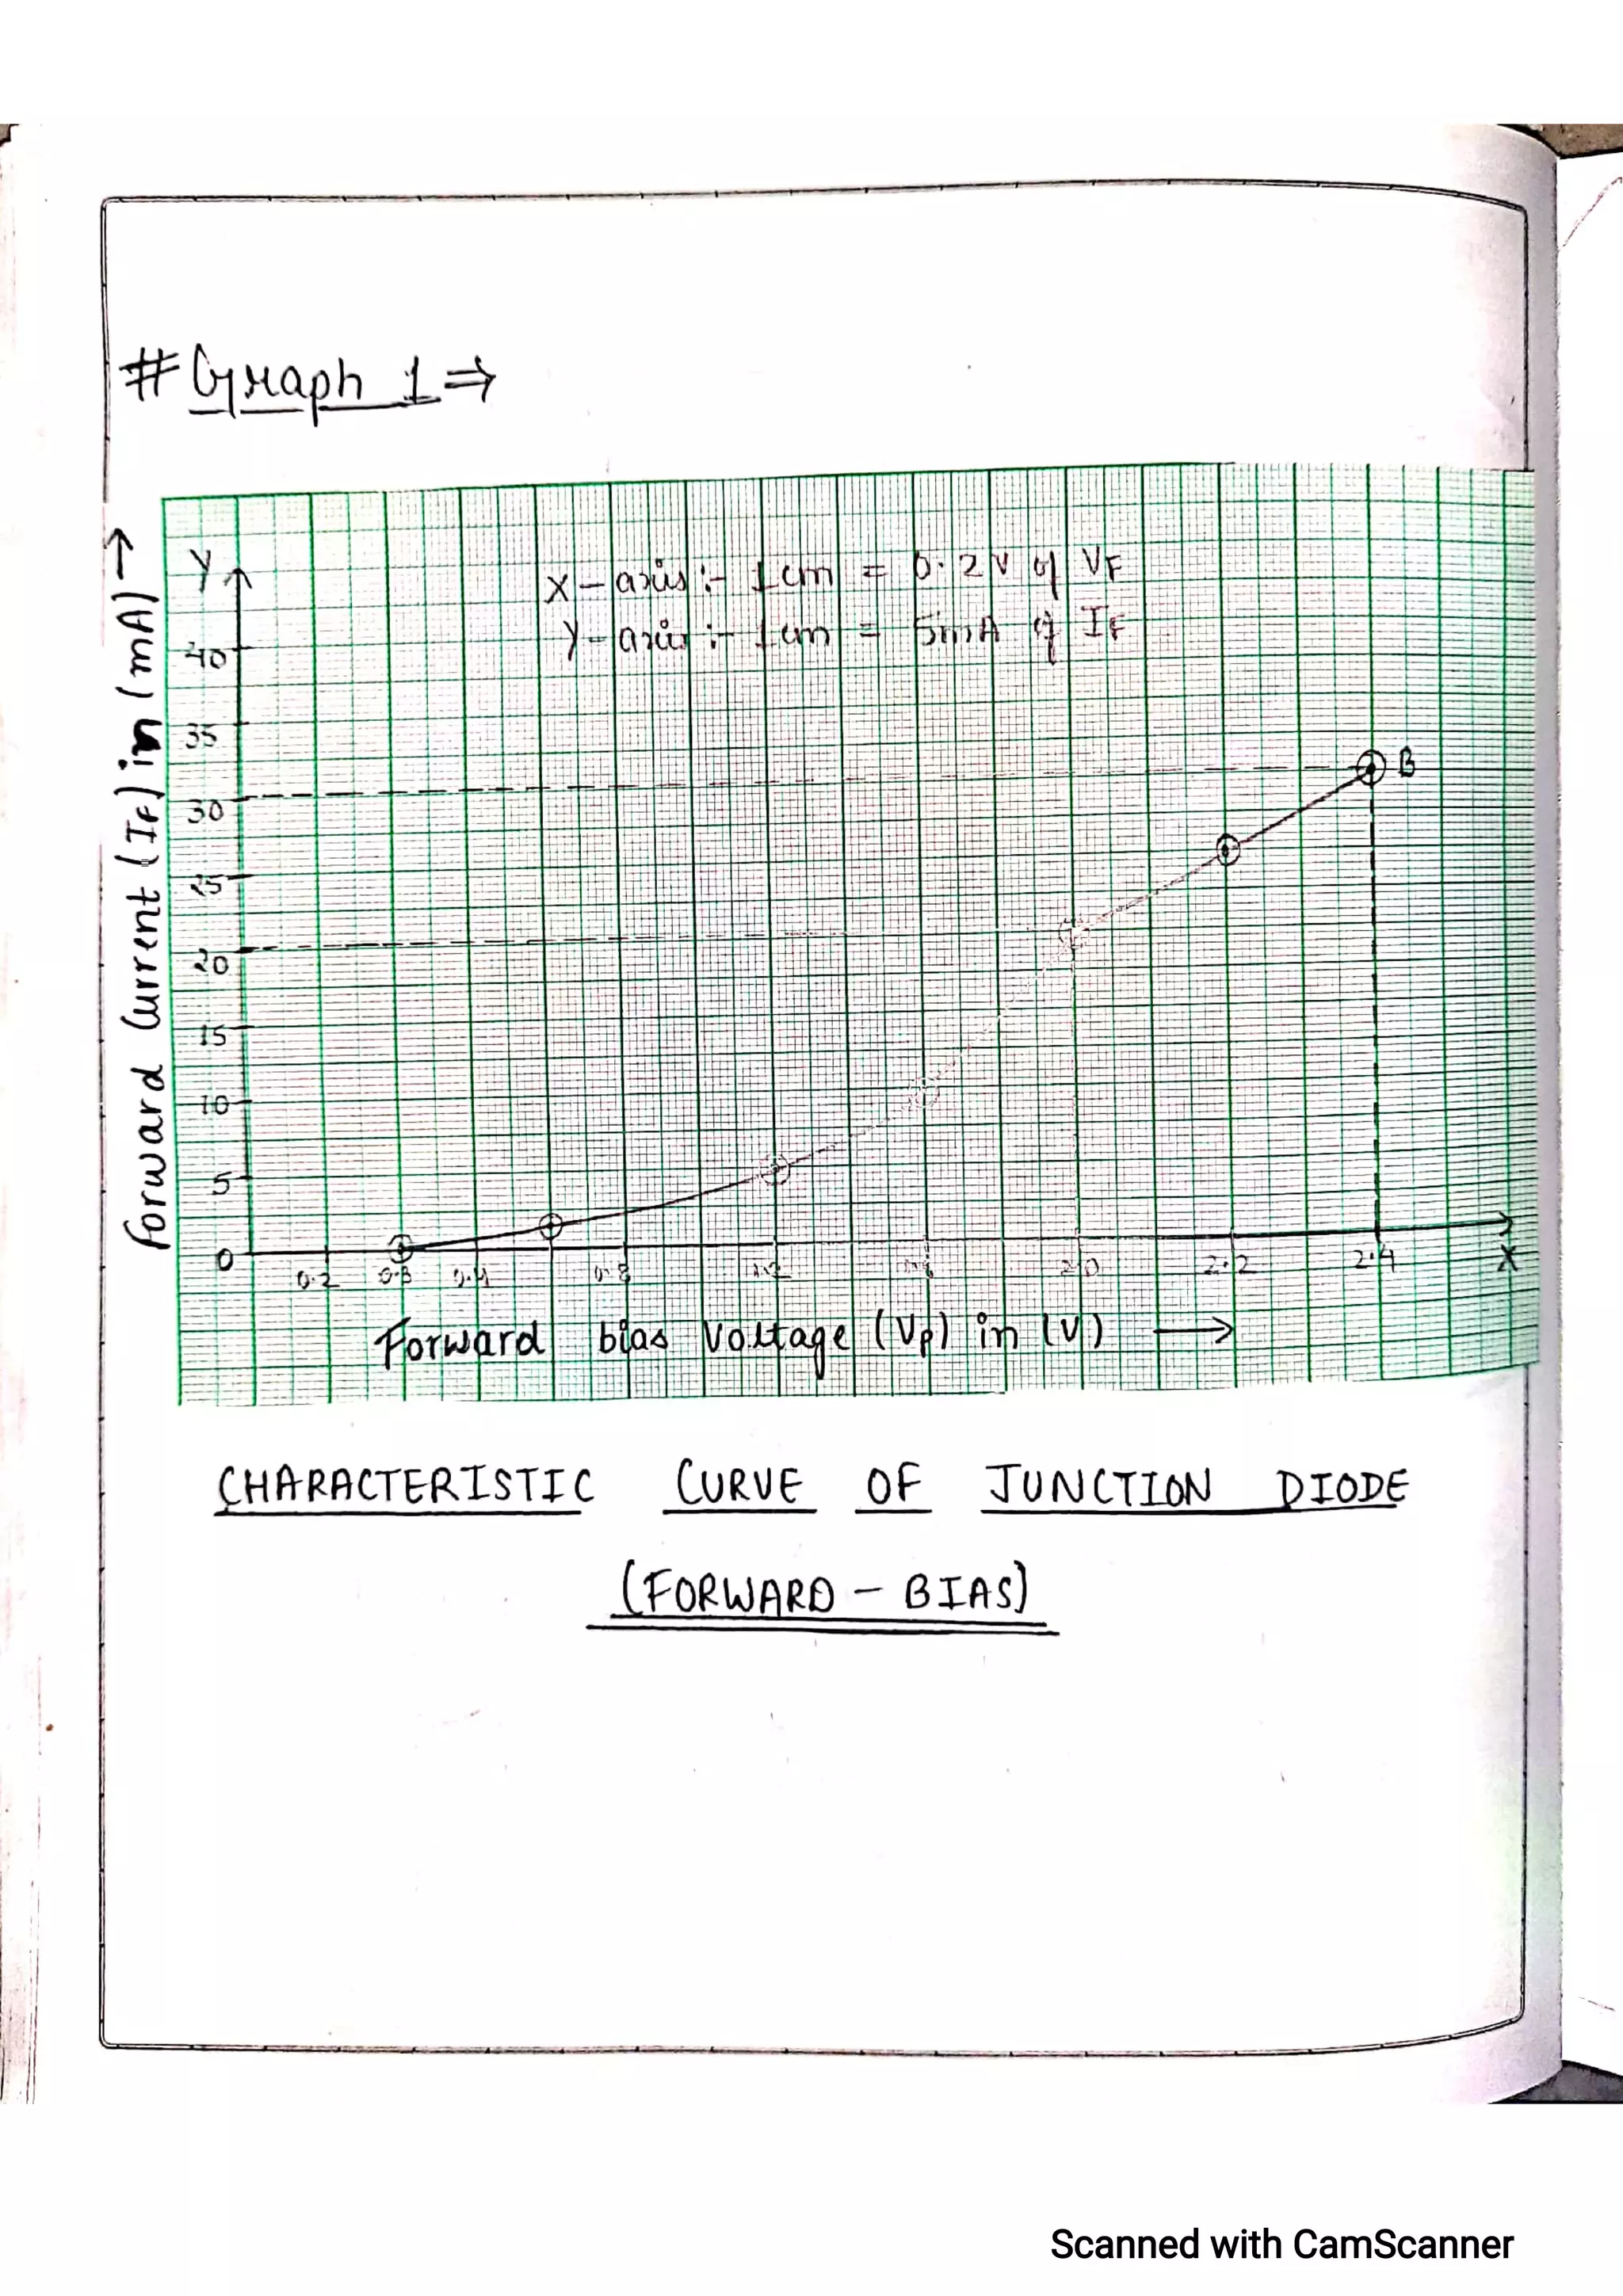 # Graph 1 ⇒
Forward Current (IF) in (mA) →
Y
X-axis :- 1 cm = 0.2 V of VF
Y-axis :- 1 cm = 5mA of IF
40
35
30
25
20
15
10
5
0
B
0.2 0.3 0.4 0.8 1.2 2.0 2.2 2.4 X
Forward bias Voltage (VF) in (V) →
CHARACTERISTIC CURVE OF JUNCTION DIODE
(FORWARD - BIAS)
Scanned with CamScanner